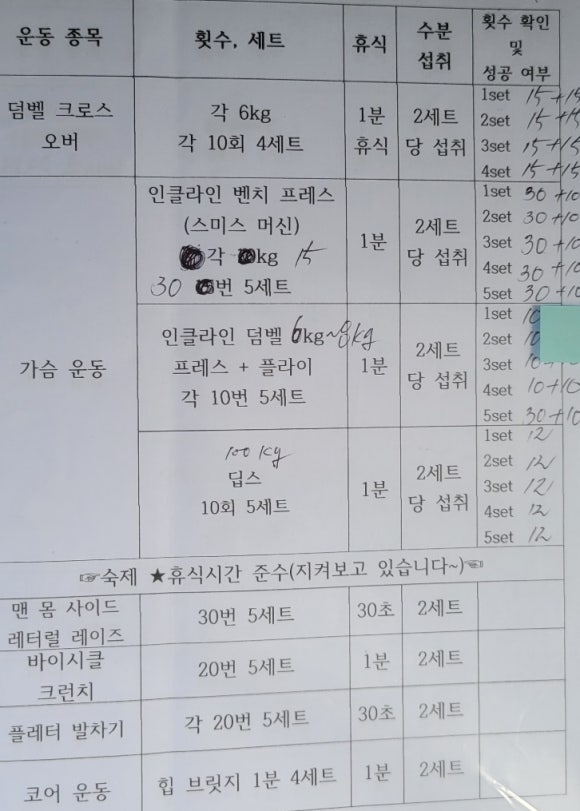 운동 종목
횟수, 세트
휴식
수분
섭취
횟수 확인
및
성공 여부
덤벨 크로스
오버
각 6kg
각 10회 4세트
1분
휴식
2세트
당 섭취
1set 15+15
2set 15+15
3set 15+15
4set 15+15
가슴 운동
인클라인 벤치 프레스
(스미스 머신)
각 kg 15
30 번 5세트
1분
2세트
당 섭취
1set 30+10
2set 30+10
3set 30+10
4set 30+10
5set 30+10
인클라인 덤벨 6kg~8kg
프레스 + 플라이
각 10번 5세트
1분
2세트
당 섭취
1set 10
2set 10
3set 10+
4set 10+10
5set 30+10
100kg
딥스
10회 5세트
1분
2세트
당 섭취
1set 12
2set 12
3set 12
4set 12
5set 12
☞숙제 ★휴식시간 준수(지켜보고 있습니다~)☜
맨 몸 사이드
레터럴 레이즈
30번 5세트
30초
2세트
바이시클
크런치
20번 5세트
1분
2세트
플레터 발차기
각 20번 5세트
30초
2세트
코어 운동
힙 브릿지 1분 4세트
1분
2세트